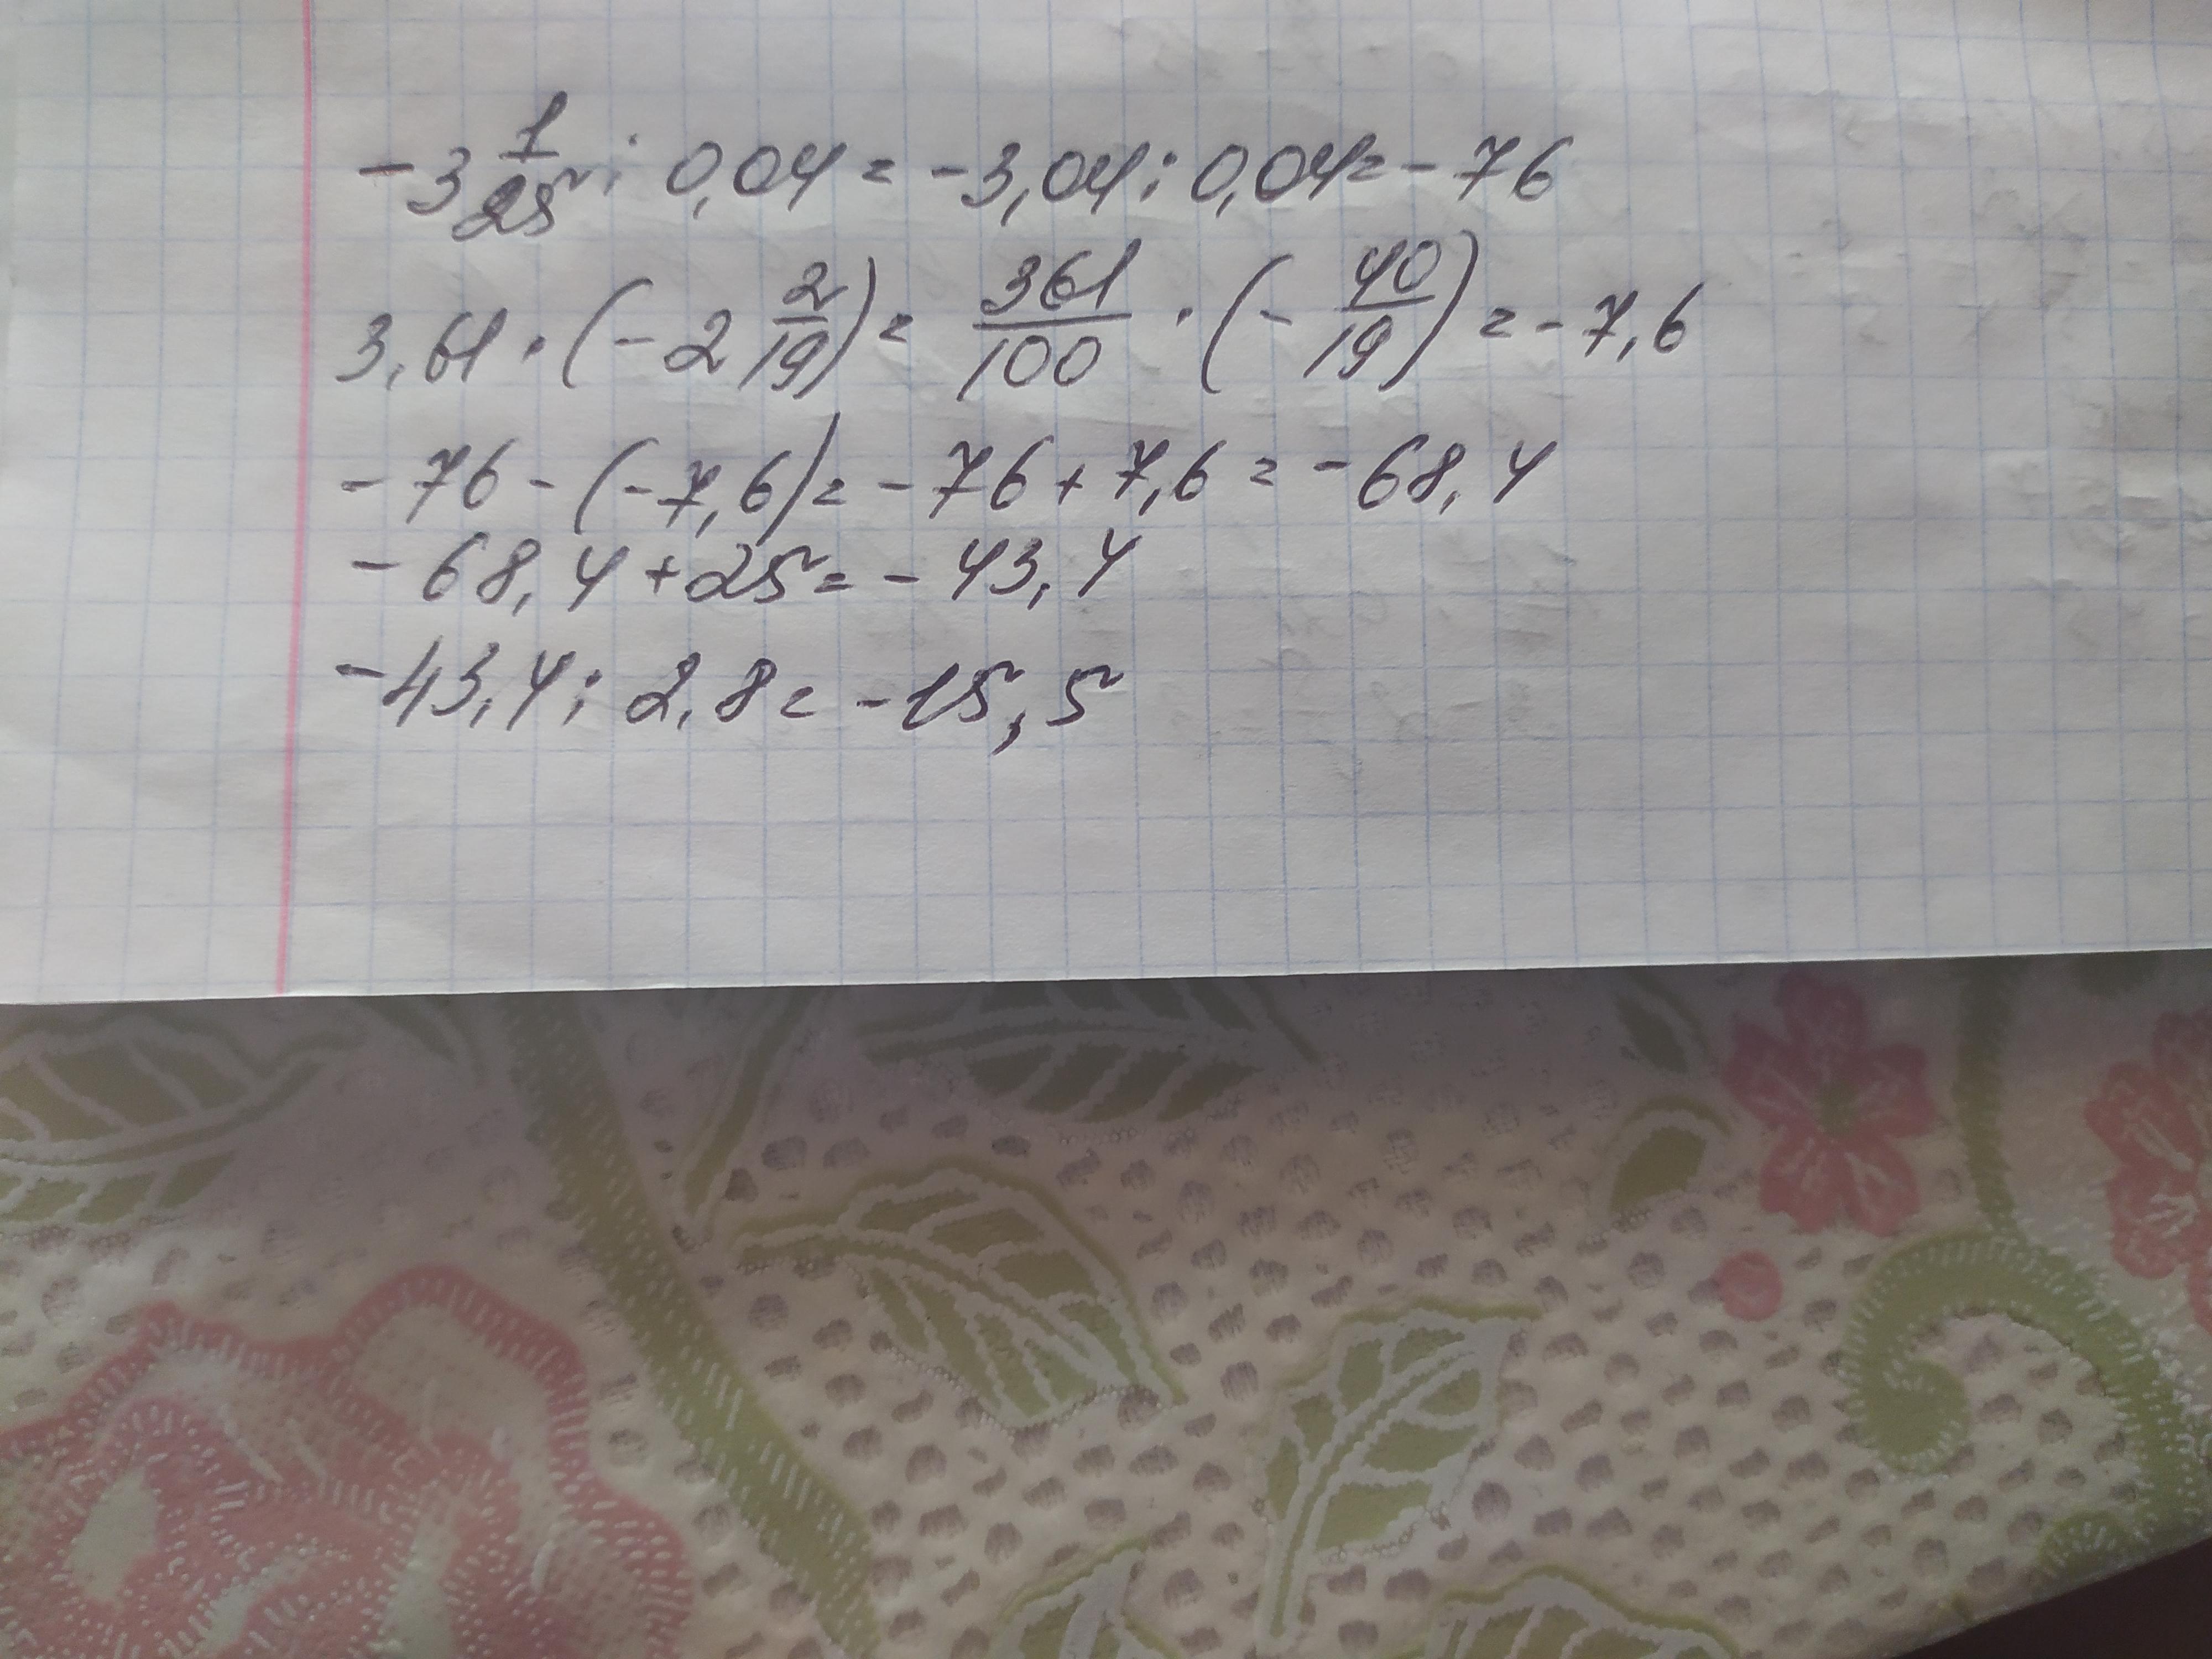 -3 1/25 : 0,04 = -3,04 : 0,04 = -76
3,61 · (-2 2/19) = 361/100 · (-40/19) = -7,6
-76 - (-7,6) = -76 + 7,6 = -68,4
-68,4 + 25 = -43,4
-43,4 : 2,8 = -15,5